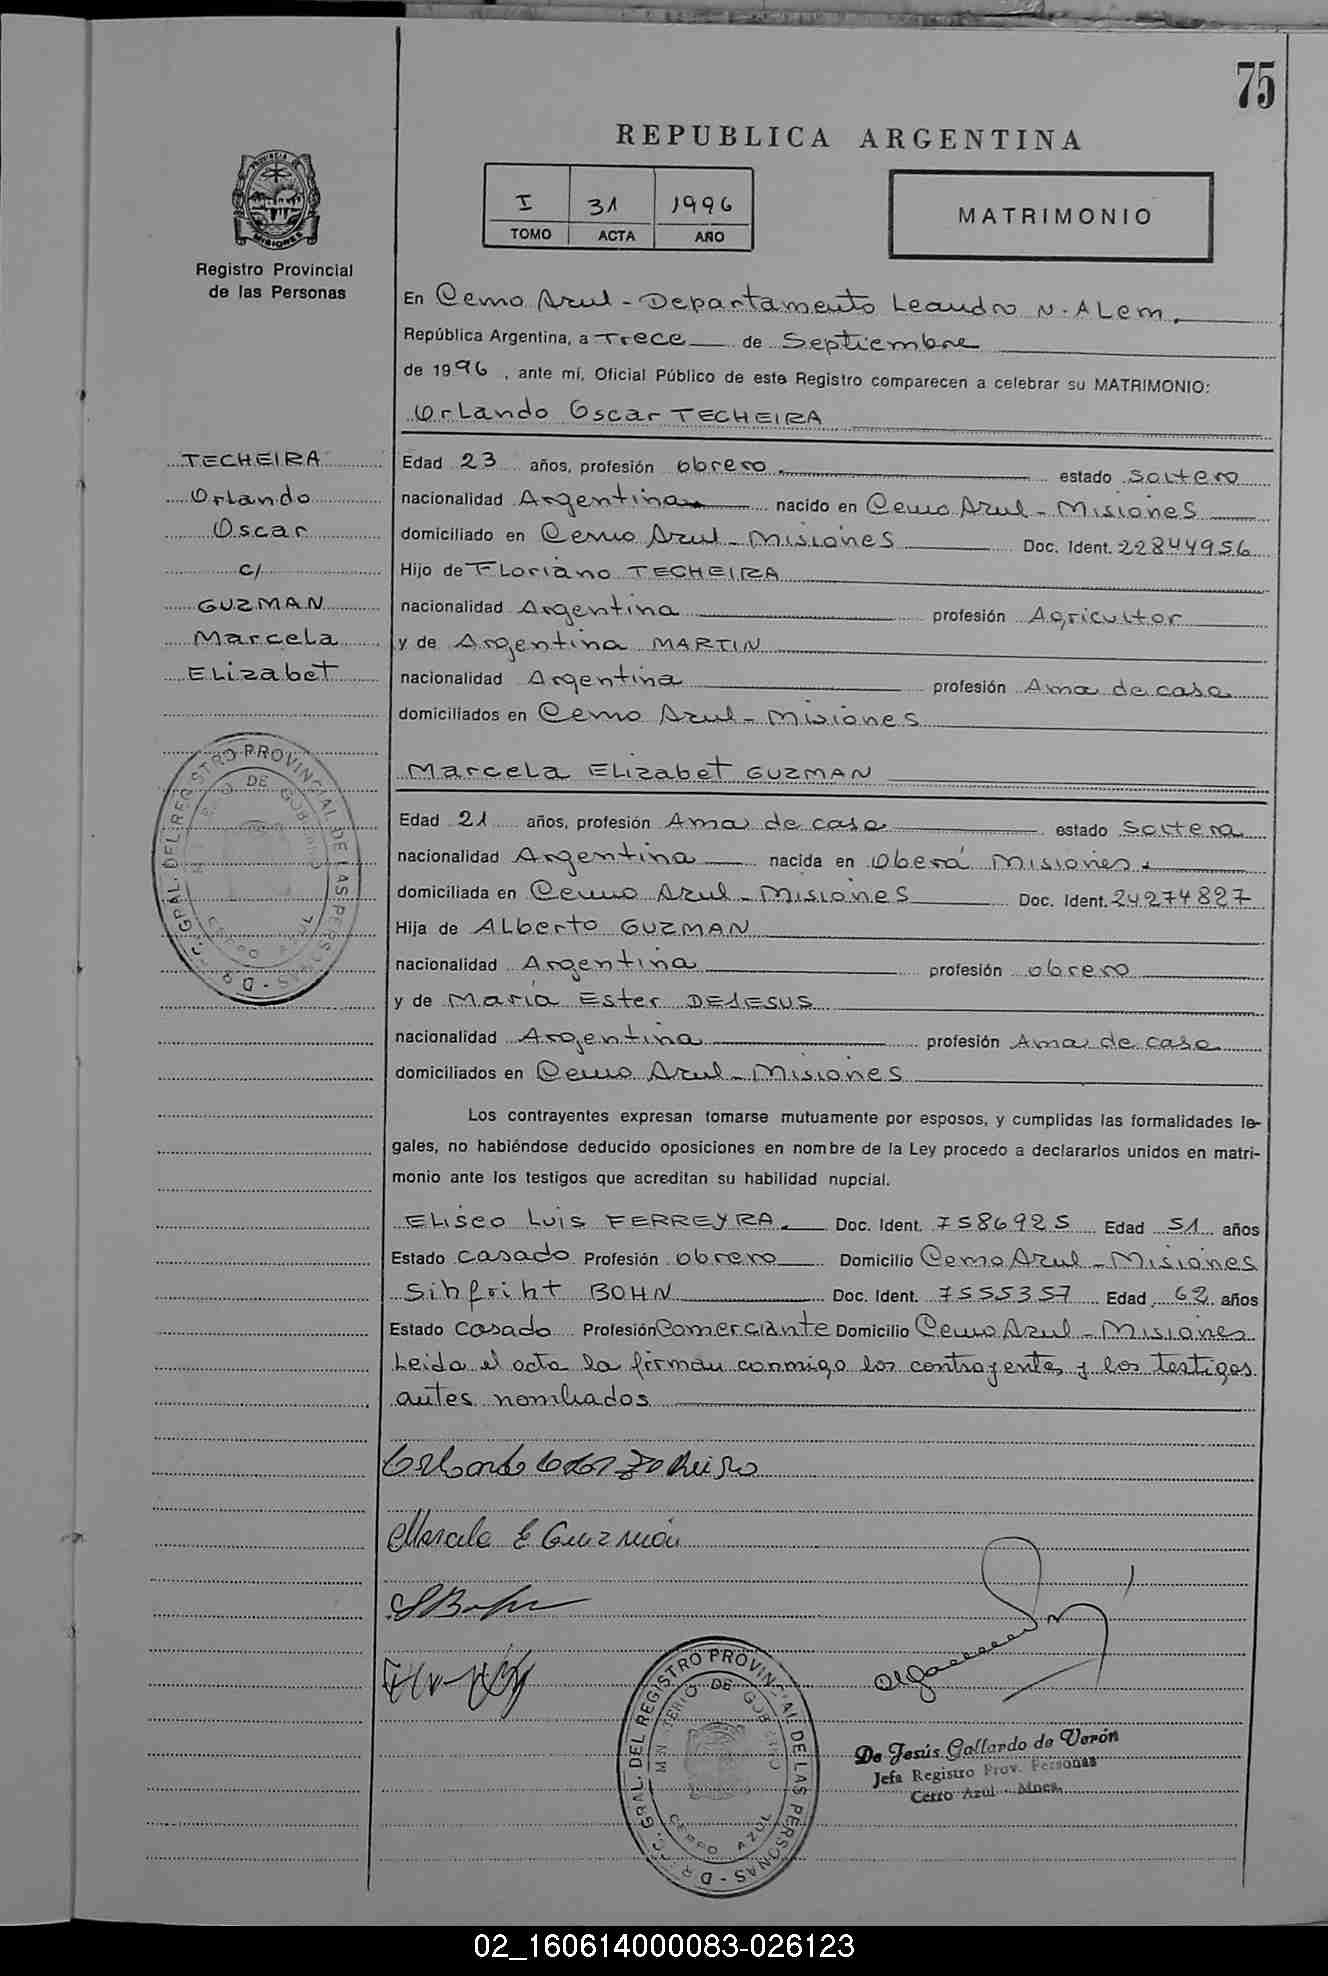 75
REPUBLICA ARGENTINA
PROVINCIA DE
MISIONES
Registro Provincial
de las Personas
I 31 1996
TOMO ACTA AÑO
MATRIMONIO
En Cerro Azul - Departamento Leandro N. ALem.
República Argentina, a Trece de Septiembre
de 1996, ante mí, Oficial Público de este Registro comparecen a celebrar su MATRIMONIO:
OrLando Oscar TECHEIRA
TECHEIRA
OrLando
Oscar
c/
GUZMAN
Marcela
ELizabet
Edad 23 años, profesión obrero. estado soltero
nacionalidad Argentina nacido en Cerro Azul - Misiones
domiciliado en Cerro Azul - Misiones Doc. Ident. 22844956
Hijo de FLoriano TECHEIRA
nacionalidad Argentina profesión Agricultor
y de Argentina MARTIN
nacionalidad Argentina profesión Ama de casa
domiciliados en Cerro Azul - Misiones
MarceLa ELizabet GUZMAN
Edad 21 años, profesión Ama de casa estado soltera
nacionalidad Argentina nacida en Oberá Misiones.
domiciliada en Cerro Azul - Misiones Doc. Ident. 24274827
Hija de ALberto GUZMAN
nacionalidad Argentina profesión obrero
y de María Ester DEJESUS
nacionalidad Argentina profesión Ama de casa
domiciliados en Cerro Azul - Misiones
Los contrayentes expresan tomarse mutuamente por esposos, y cumplidas las formalidades le-
gales, no habiéndose deducido oposiciones en nombre de la Ley procedo a declararlos unidos en matri-
monio ante los testigos que acreditan su habilidad nupcial.
ELiseo Luis FERREYRA. Doc. Ident. 7586925 Edad 51 años
Estado casado Profesión obrero Domicilio Cerro Azul - Misiones
Sihfriht BOHN Doc. Ident. 7555357 Edad 62 años
Estado casado Profesión Comerciante Domicilio Cerro Azul - Misiones
Leida el acta la firman conmigo los contrayentes y los testigos
antes nombrados
Marcela E Guzmán
DIREC. GRAL. DEL REGISTRO PROVINCIAL DE LAS PERSONAS
MINISTERIO DE GOBIERNO
CERRO AZUL
DIREC. GRAL. DEL REGISTRO PROVINCIAL DE LAS PERSONAS
MINISTERIO DE GOBIERNO
CERRO AZUL
De Jesús Gallardo de Verón
Jefa Registro Prov. Personas
Cerro Azul - Mnes.
02_160614000083-026123